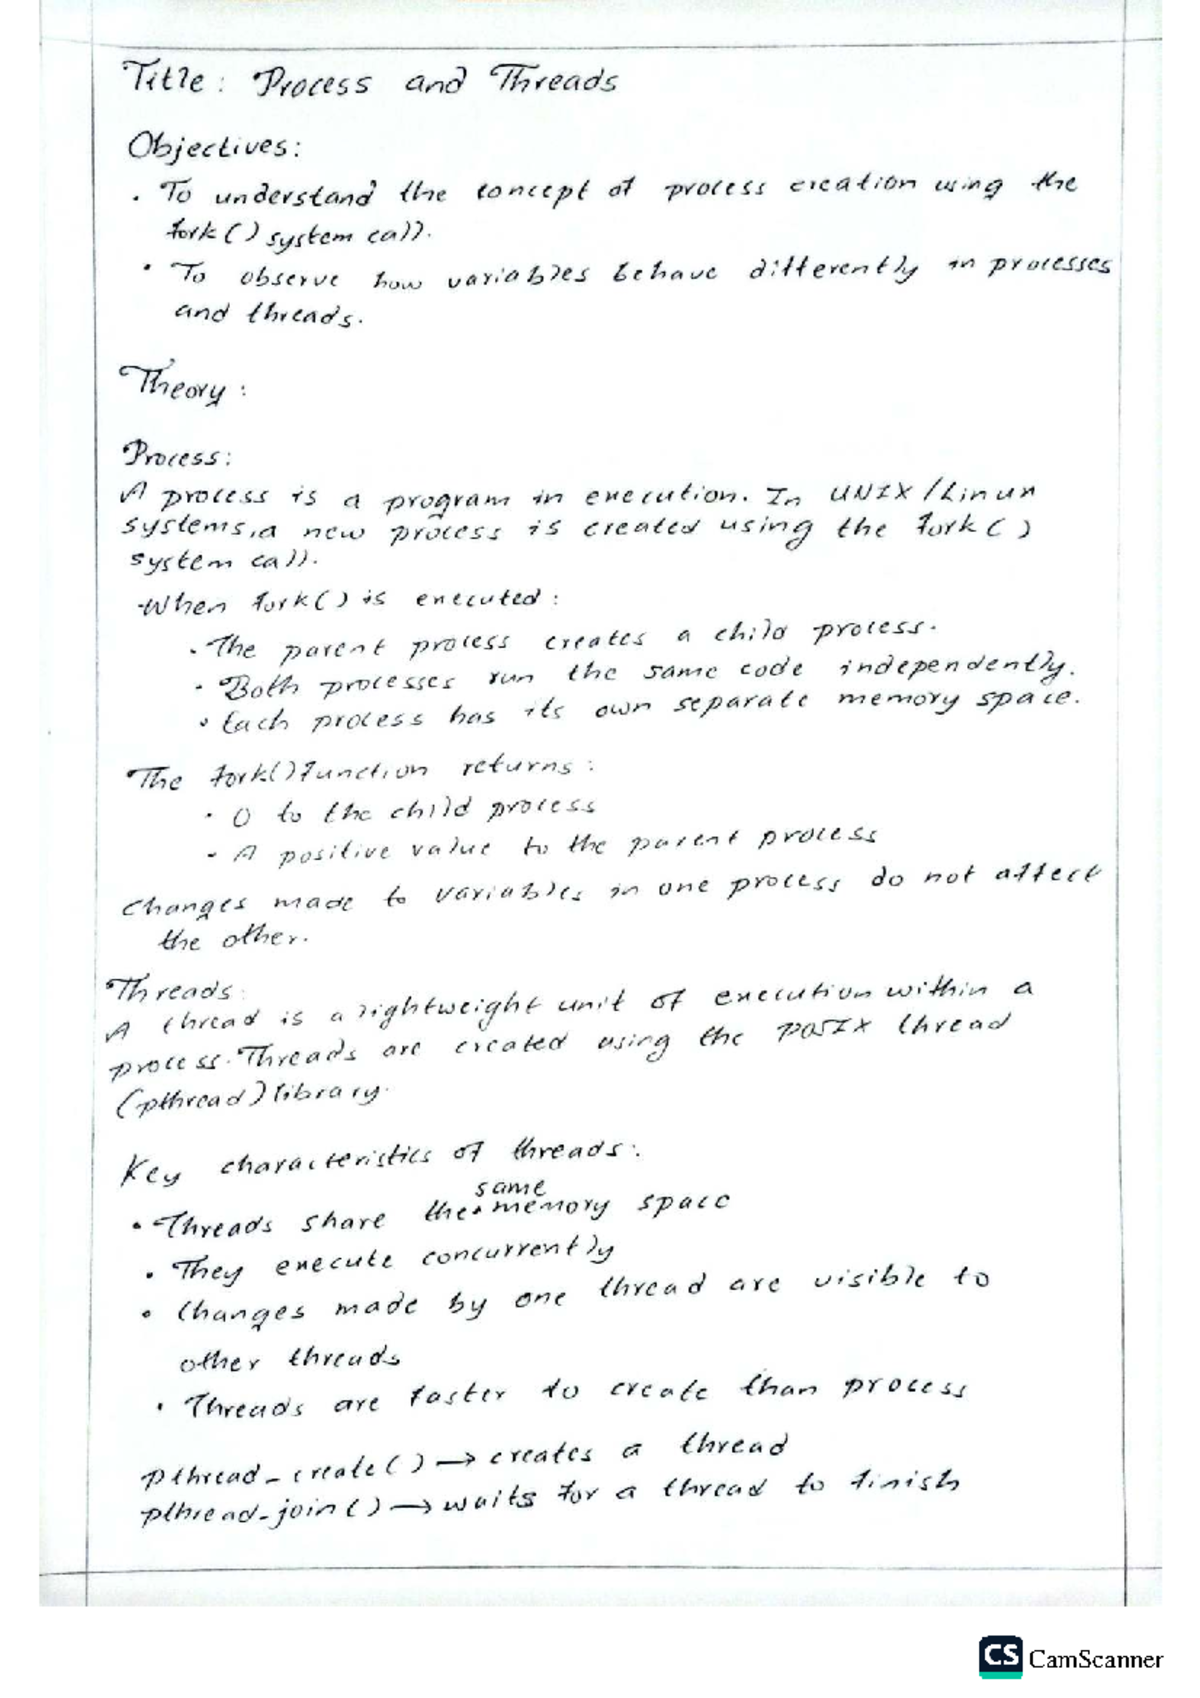 Title: Process and Threads
Objectives:
• To understand the concept of process creation using the
fork() system call.
• To observe how variables behave differently in processes
and threads.
Theory:
Process:
A process is a program in execution. In UNIX/Linux
systems, a new process is created using the fork()
system call.
-When fork() is executed:
• The parent process creates a child process.
• Both processes run the same code independently.
• Each process has its own separate memory space.
The fork() function returns:
• 0 to the child process
• A positive value to the parent process
Changes made to variables in one process do not affect
the other.
Threads:
A thread is a lightweight unit of execution within a
process. Threads are created using the POSIX thread
(pthread) library.
Key characteristics of threads:
• Threads share the same memory space
• They execute concurrently
• Changes made by one thread are visible to
other threads
• Threads are faster to create than process
pthread_create() → creates a thread
pthread_join() → waits for a thread to finish
CS CamScanner